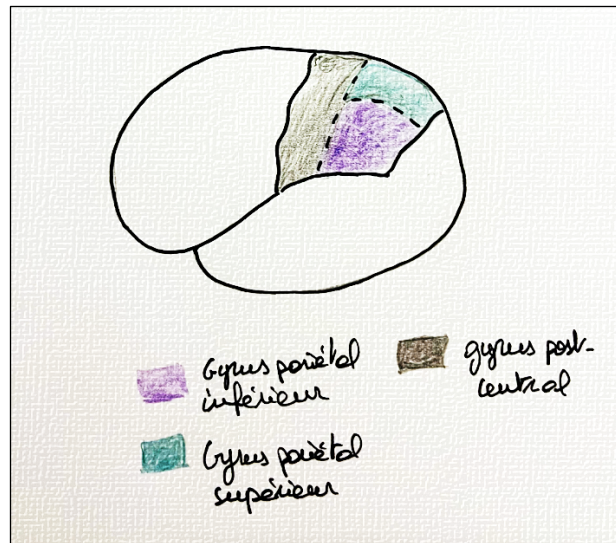 Gyrus pariétal
inférieur
gyrus post-
central
Gyrus pariétal
supérieur